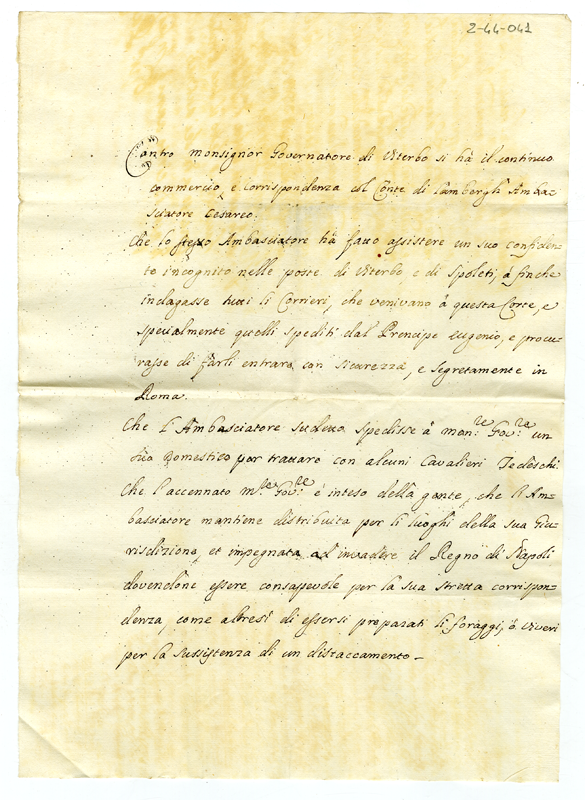 2-44-041
Contro Monsignor Governatore di Viterbo si hà il continuo
commercio, e Corrispondenza col Conte di Lambergh Amba-
sciatore Cesareo.
Che lo stesso Ambasciatore hà fatto assistere un suo confiden-
te incognito nelle poste di Viterbo, e di Spoleti, à finche
indagasse tutti li Corrieri, che venivano à questa Corte, e
specialmente quelli spediti dal Prencipe Eugenio, e procu-
rasse di farli entrare con sicurezza, e segretamente in
Roma.
Che l'Ambasciatore sudetto spedisse à mon.re Gov.re un
suo Domestico per trattare con alcuni Cavalieri Tedeschi.
Che l'accennato m.re Gov.re è inteso della gente, che l'Am-
basciatore mantiene distribuita per li luoghi della sua Giu-
risdizione, et impegnata ad invadere il Regno di Napoli
dovendone essere consapevole per la sua stretta corrispon-
denza, come altresì di essersi preparati li foraggi, ò viveri
per la sussistenza di un distaccamento -